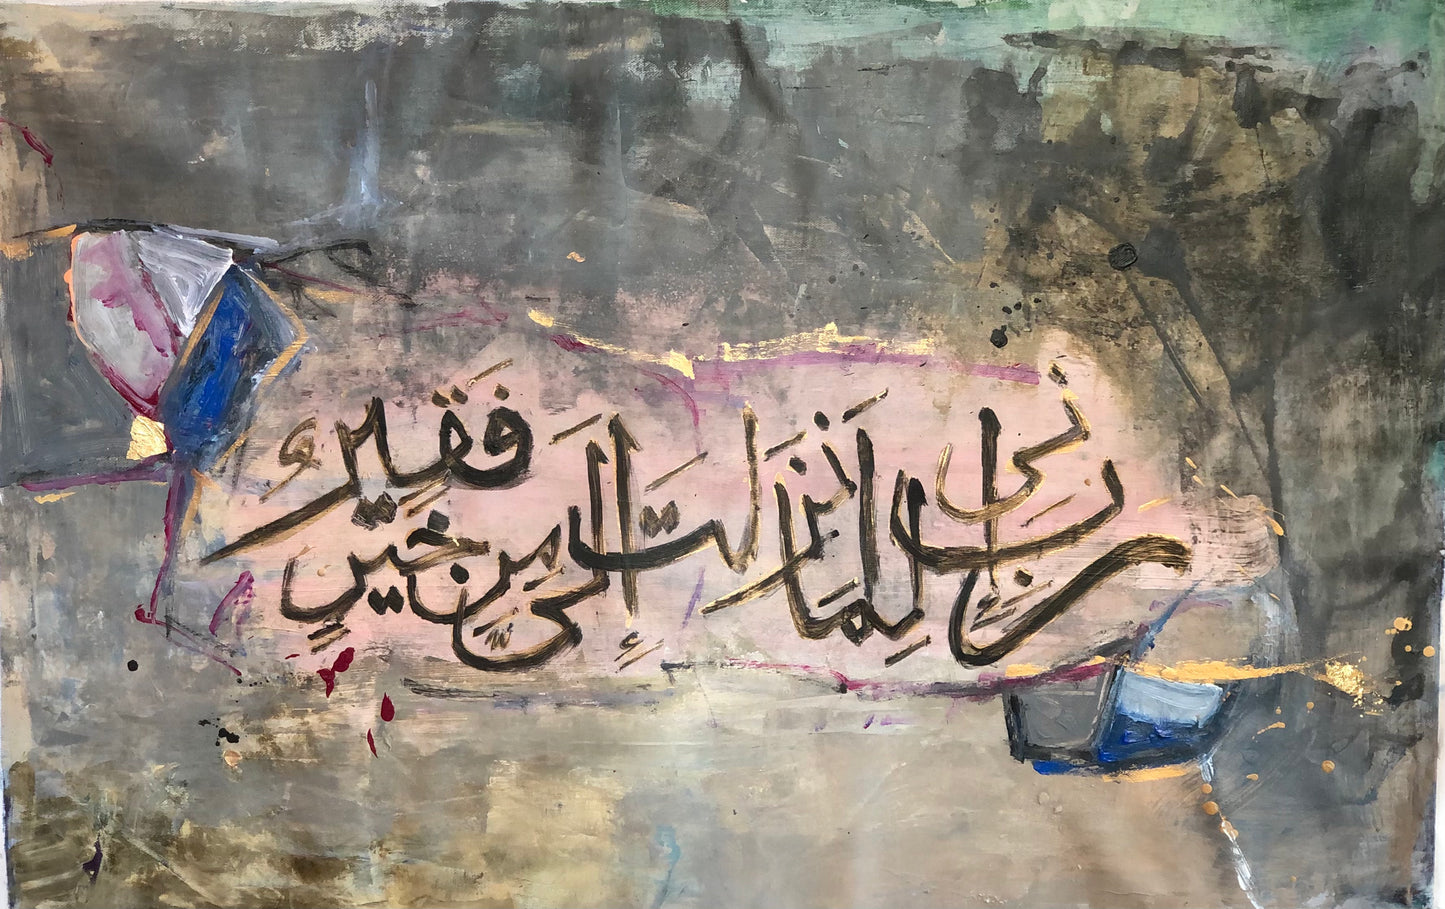 رب إني لِمَا أَنزلتَ إِلَيَّ مِن خيرٍ فَقِيرٌ